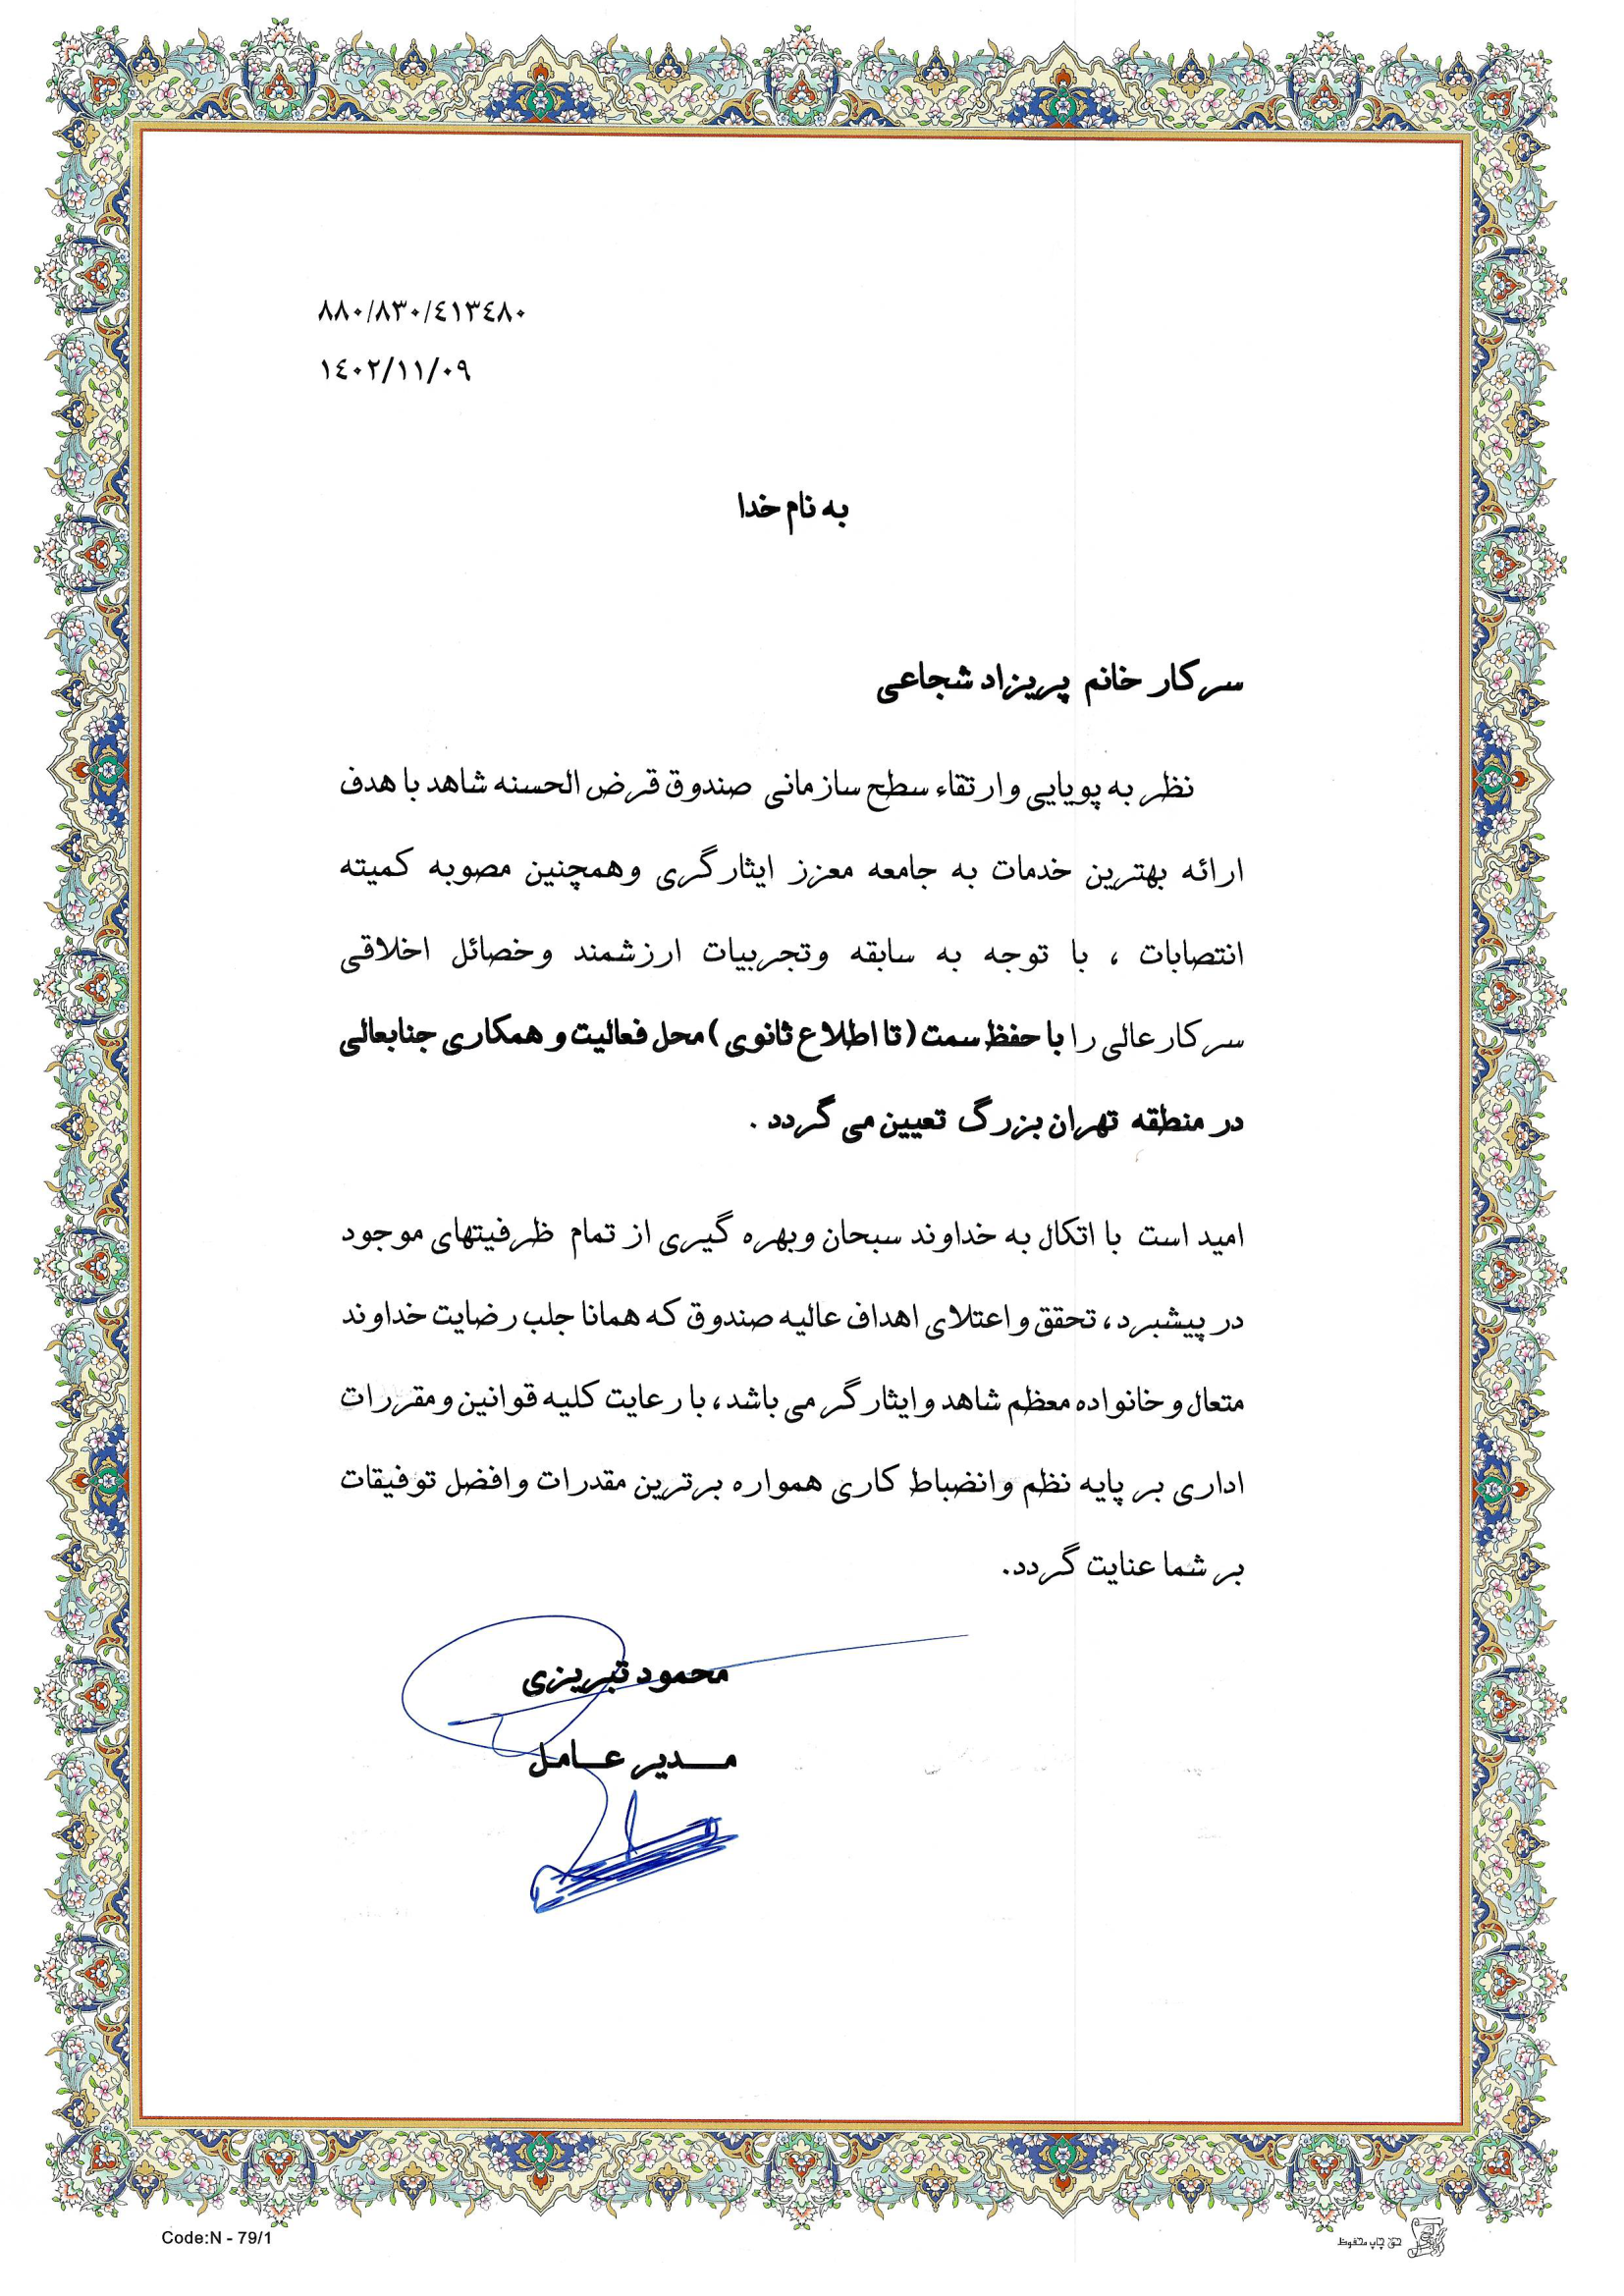 ۸۸۰/۸۳۰/٤۱۳٤۸۰
۱٤۰۲/۱۱/۰۹
به نام خدا
سرکار خانم پریزاد شجاعی
نظر به پویایی وارتقاء سطح سازمانی صندوق قرض الحسنه شاهد با هدف
ارائه بهترین خدمات به جامعه معزز ایثارگری وهمچنین مصوبه کمیته
انتصابات ، با توجه به سابقه وتجربیات ارزشمند وخصائل اخلاقی
سرکارعالی را با حفظ سمت (تا اطلاع ثانوی) محل فعالیت و همکاری جنابعالی
در منطقه تهران بزرگ تعیین می گردد .
امید است با اتکال به خداوند سبحان وبهره گیری از تمام ظرفیتهای موجود
در پیشبرد، تحقق و اعتلای اهداف عالیه صندوق که همانا جلب رضایت خداوند
متعال و خانواده معظم شاهد و ایثارگر می باشد، با رعایت کلیه قوانین و مقررات
اداری بر پایه نظم وانضباط کاری همواره برترین مقدرات و افضل توفیقات
بر شما عنایت گردد.
محمود تبریزی
مـــدیر عـــامل
Code:N - 79/1
حق چاپ محفوظ